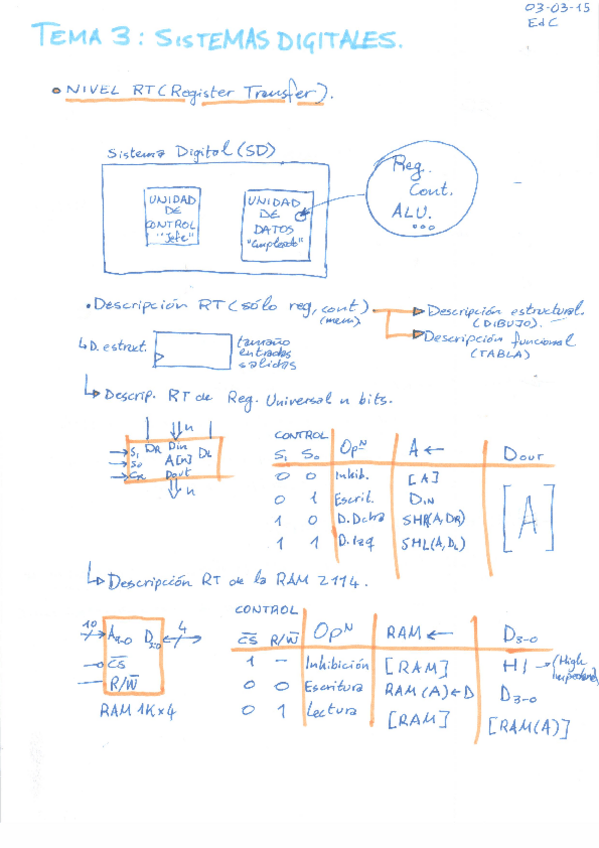 03-03-15
EdC
TEMA 3: SISTEMAS DIGITALES.
• NIVEL RT (Register Transfer).
Sistema Digital (SD)
UNIDAD DE CONTROL "Jefe"
UNIDAD DE DATOS "Empleado"
Reg.
Cont.
ALU.
ooo
• Descripción RT (sólo reg, cont)
(mem)
Descripción estructural.
(DIBUJO).
Descripción funcional
(TABLA)
D. estruct.
tamaño
entradas
salidas
Descrip. RT de Reg. Universal n bits.
n
S1 DR Din DL
S0 A[n]
CK Dout
n
CONTROL
S1 S0 Opᴺ A ← DOUT
0 0 Inhib. [A]
0 1 Escrit. DIN
1 0 D. Dcha SHR(A,DR)
1 1 D. Izq SHL(A,DL)
[A]
Descripción RT de la RAM 2114.
10 4
A9-0 D3-0
C̅S̅
R/W̅
RAM 1K×4
CONTROL
C̅S̅ R/W̅ Opᴺ RAM ← D3-0
1 - Inhibición [RAM] HI → (High Impedance)
0 0 Escritura RAM(A)←D D3-0
0 1 Lectura [RAM] [RAM(A)]